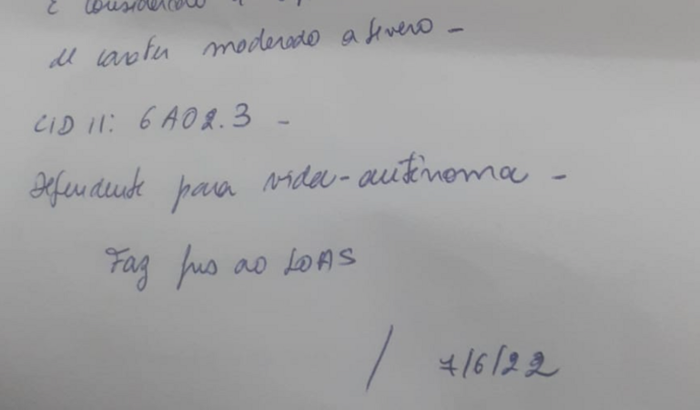 é considerado
de carater moderado a severo -
CID 11: 6A02.3 -
Dependente para vida-autônoma -
Faz jus ao LOAS
/ 7/6/22